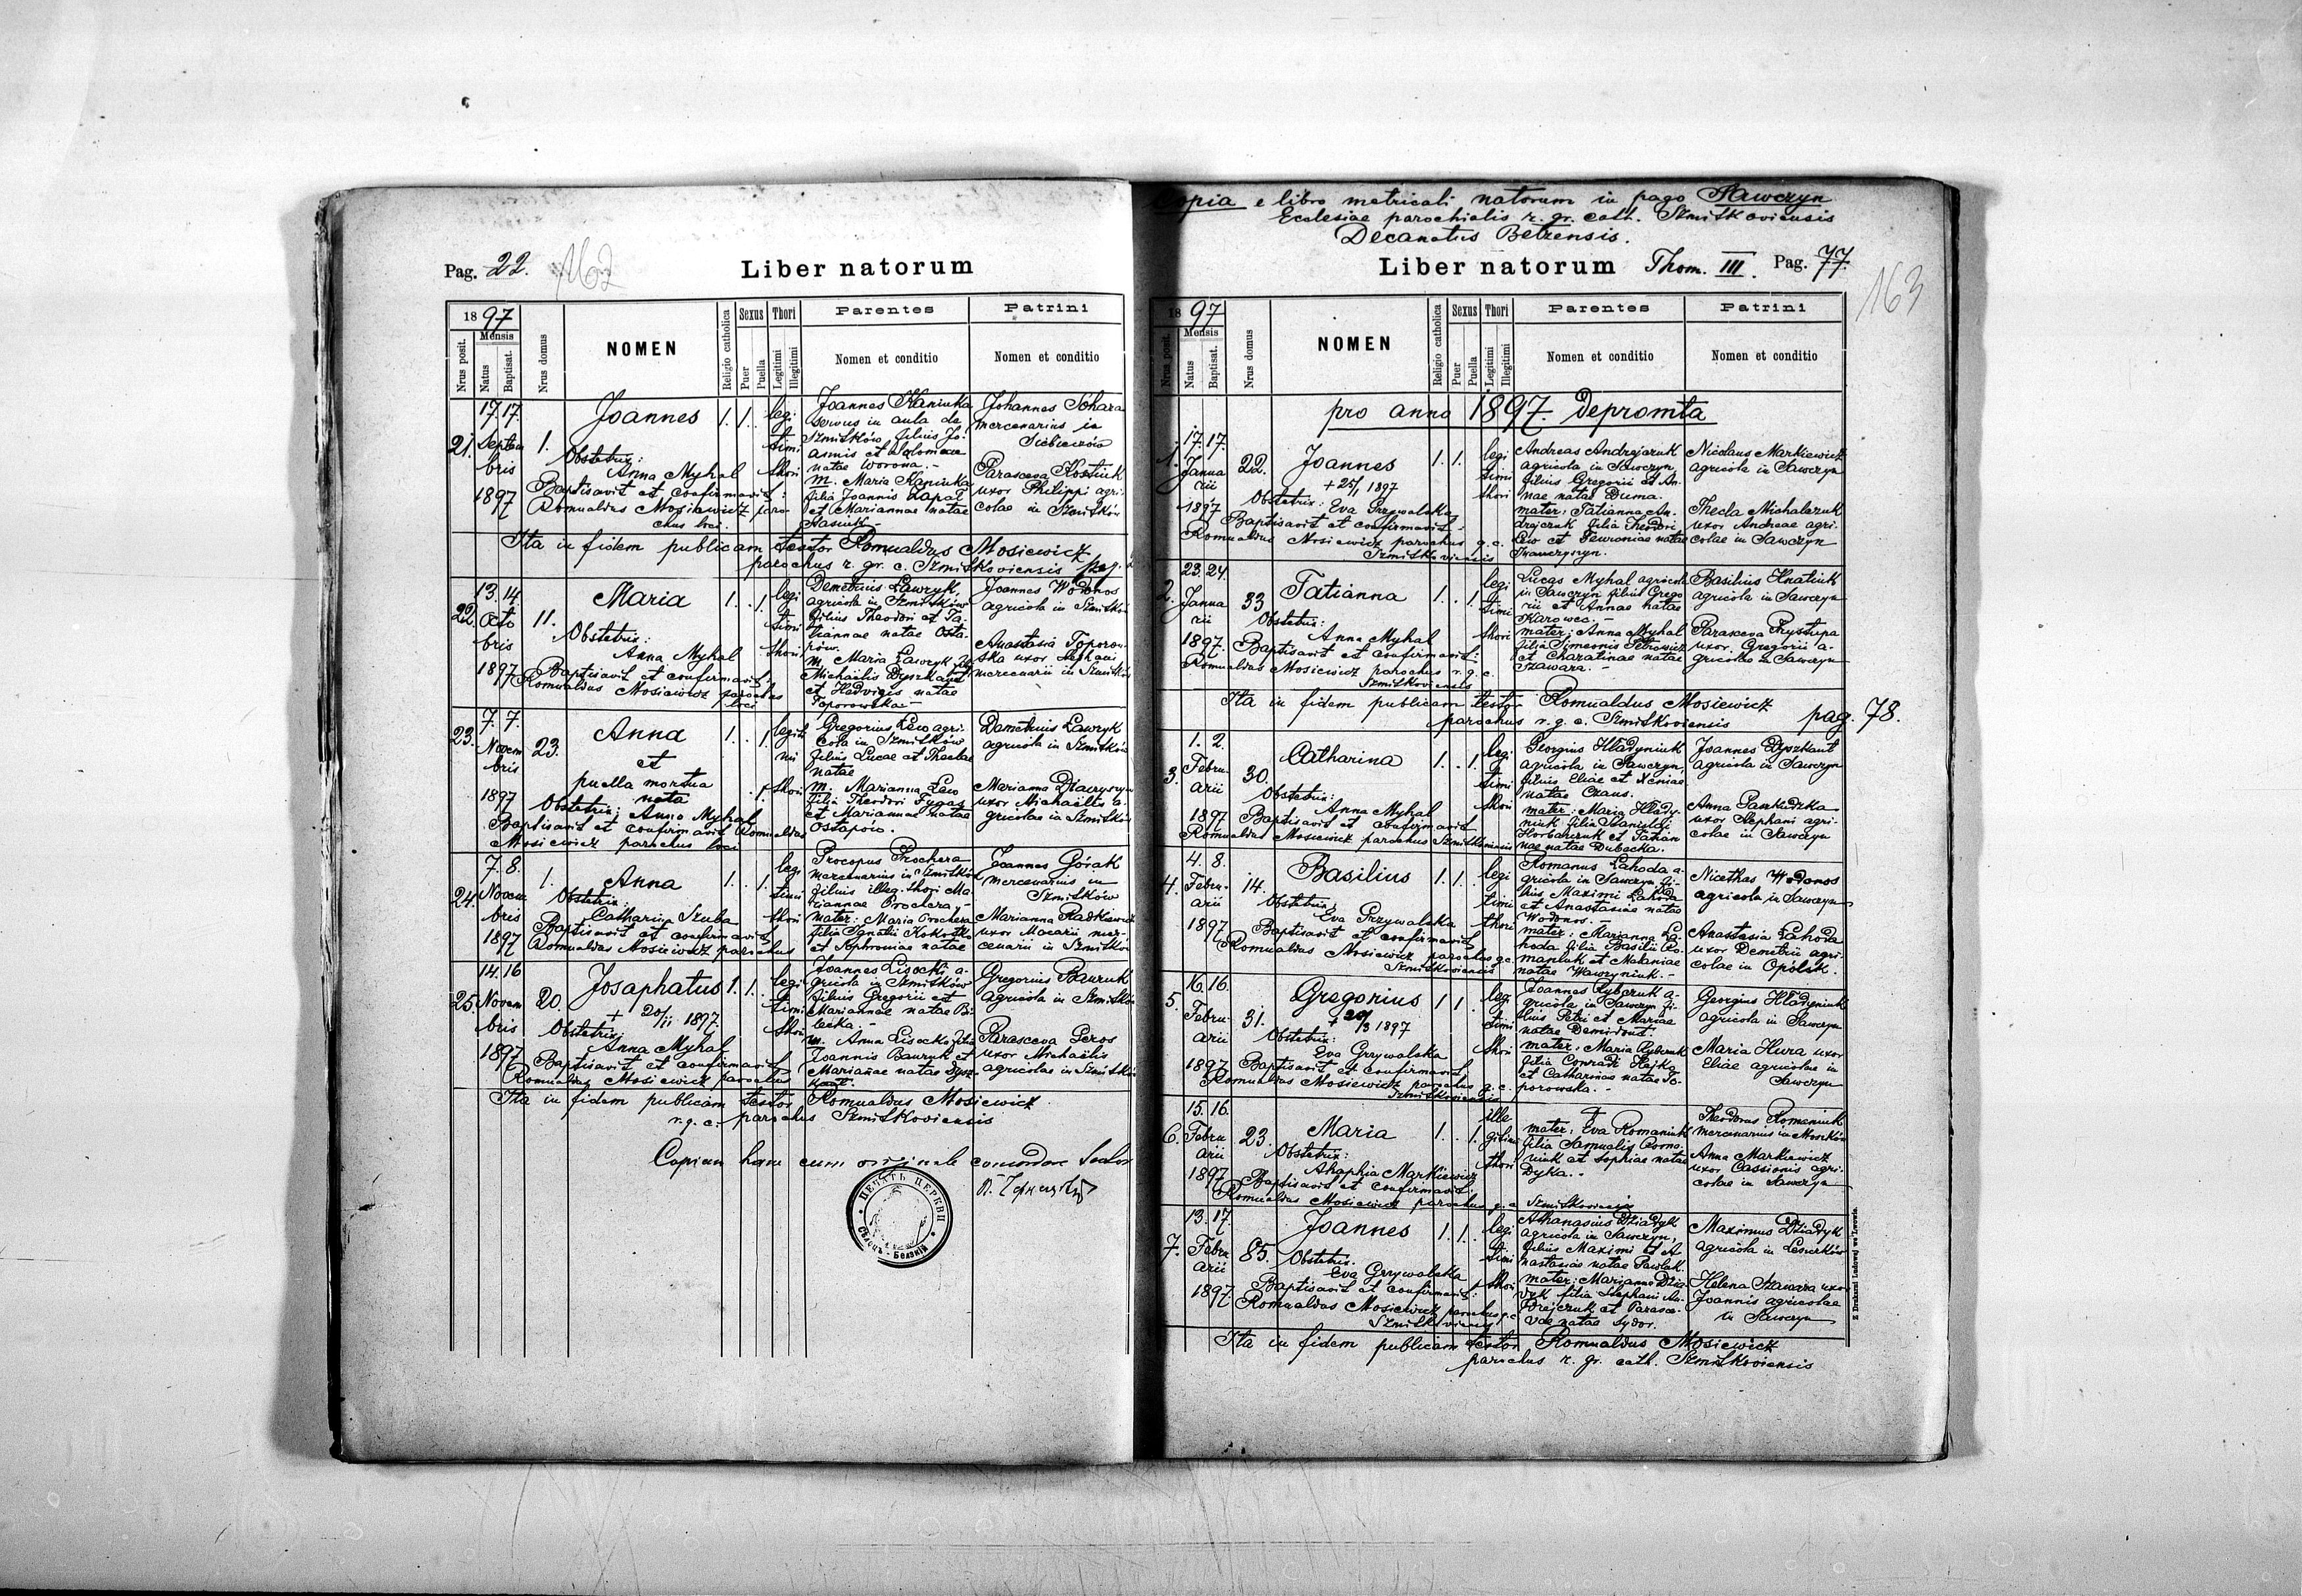 Pag. 22. 162
Liber natorum
1897
Nrus posit.
Mensis
Natus
Baptisat.
Nrus domus
NOMEN
Religio catholica
Sexus
Puer
Puella
Thori
Legitimi
Illegitimi
Parentes
Nomen et conditio
Patrini
Nomen et conditio
21.
17. 17.
Septem
bris
1897
1.
Joannes
Obstetrix:
Anna Myhal
Baptisavit et confirmavit:
Romualdus Mosiewicz paro-
chus loci.
1. 1.
legi
timi
thori
Joannes Kaniuka
servus in aula de
Szmitków filius Jo-
annis et Salomeae
natae Worona. -
m. Maria Kaniuka
filia Joannis Łapał
et Mariannae natae
Johannes Sohara
mercenarius in
Parasceva Kostiuk
uxor Philippi agri-
colae in Szmitków
Ita in fidem publicam testor Romualdus Mosiewicz
parochus r. gr. c. Szmitkoviensis pag.
22.
13. 14.
Octo
bris
1897
11.
Maria
Obstetrix:
Anna Myhal
Baptisavit et confirmavit
Romualdus Mosiewicz parochus
loci
1. 1.
legi
timi
thori
Demetrius Ławryk,
agricola in Szmitków
filius Theodori et Ta-
tiannae natae Osta-
pów.
m. Maria Ławryk fil.
Michaëlis Dyszkant
et Hedvigis natae
Toporowska -
Joannes Wodonos
agricola in Szmitków
Anastasia Toporow-
ska uxor Stephani
mercenarii in Szmitków
23.
7. 7.
Novem
bris
1897
23.
Anna
et
puella mortua
nata
Obstetrix: Anna Myhal
Baptisavit et confirmavit Romualdus
Mosiewicz parochus loci
1. 1.
1.
legiti
mi
thori
Gregorius Lew agri-
cola in Szmitków
filius Lucae et Theclae
natae
m. Marianna Lew
filia Theodori Fygas
et Mariannae natae
Ostapów.
Demetrius Ławryk
agricola in Szmitków
Marianna
uxor Michaëlis a-
gricolae in Szmitków
24.
7. 8.
Novem
bris
1897
1.
Anna
Obstetrix:
Catharina Szuba
Baptisavit et confirmavit
Romualdus Mosiewicz parochus
1. 1.
legi
timi
thori
Procopus Prochera
mercenarius in Szmitków
filius illeg. thori Ma-
riannae Prochera, -
mater: Maria Prochera
filia Ignatii
et Sophroniae natae
Joannes Górak
mercenarius in
Szmitków
Marianna Radkiewicz
uxor Macarii mer-
cenarii in Szmitków
25.
14. 16
Novem
bris
1897
20.
Josaphatus
+ 20/11 1897.
Obstetrix:
Anna Myhal
Baptisavit et confirmavit
Romualdus Mosiewicz parochus
1. 1.
legi
timi
thori
Joannes Lisocki a-
gricola in Szmitków
filius Gregorii et
Mariannae natae Bi-
lecka -
m. Anna Lisocka filia
Joannis Bauruk et
Mariannae natae Dysz-
kant.
Gregorius Bauruk
agricola in Szmitków
Parasceva Geros
uxor Michaëlis
agricolae in Szmitków
Ita in fidem publicam testor Romualdus Mosiewicz
r. g. c. parochus Szmitkoviensis
Copiam hanc cum originale concordare testor
ПЕЧАТЬ ЦЕРКВИ
Copia e libro metricali natorum in pago Sawczyn
Ecclesiae parochialis r. gr. cath. Szmitkoviensis
Decanatus Belzensis.
Liber natorum Thom. III. Pag. 77. 163
1897
Nrus posit.
Mensis
Natus
Baptisat.
Nrus domus
NOMEN
Religio catholica
Sexus
Puer
Puella
Thori
Legitimi
Illegitimi
Parentes
Nomen et conditio
Patrini
Nomen et conditio
pro anno 1897. depromta
1.
17. 17.
Janua
rii
1897
22.
Joannes
+ 25/1 1897
Obstetrix: Eva Grzywalska
Baptisavit et confirmavit -
Romualdus Mosiewicz parochus g. c.
Szmitkoviensis
1. 1.
legi
timi
thori
Andreas Andrejczuk
agricola in Sawczyn,
filius Gregorii et An-
nae natae Duma.
mater: Tatianna An-
drejczuk filia Theodori
Lew et Fewroniae natae
Iwanczyszyn.
Nicolaus Markiewicz
agricola in Sawczyn
Thecla Michalczuk
uxor Andreae agri-
colae in Sawczyn
2.
23. 24.
Janua
rii
1897.
33
Tatianna
Obstetrix:
Anna Myhal
Baptisavit et confirmavit
Romualdus Mosiewicz parochus r. g. c.
Szmitkoviensis
1. 1.
legi
timi
thori
Lucas Myhal agricola
in Sawczyn filius Grego
rii et Annae natae
Karowec. -
mater: Anna Myhal
filia Simeonis Petrowicz
et Charatinae natae
Szawara. -
Basilius Hnatiuk
agricola in Sawczyn
Parasceva Prystupa
uxor Gregorii a-
gricolae in Sawczyn
Ita in fidem publicam testor Romualdus Mosiewicz
parochus r. g. c. Szmitkoviensis pag. 78.
3.
1. 2.
Febru-
arii
1897
30.
Catharina
Obstetrix:
Anna Myhal
Baptisavit et confirmavit
Romualdus Mosiewicz parochus Szmitkoviensis
1. 1.
legi
timi
thori
Georgius Hładyniuk
agricola in Sawczyn,
filius Eliae et Xeniae
natae Czaus.
mater: Maria Hłady-
niuk filia
Horbaczuk et Tatian
nae natae Dubecka.
Joannes Dyszkant
agricola in Sawczyn
Anna
uxor Stephani agri-
colae in Sawczyn
4.
4. 8.
Febru-
arii
1897
14.
Basilius
Obstetrix:
Eva Grzywalska
Baptisavit et confirmavit
Romualdus Mosiewicz parochus g. c.
Szmitkoviensis
1. 1.
legi
timi
thori
Romanus Lahoda a-
gricola in Sawczyn fi-
lius Maximi Lahoda
et Anastasiae natae
Wodonos. -
mater: Marianna La-
hoda filia Basilii Ro-
maniuk et Melaniae
natae Wawryniuk. -
Nicethas Wodonos
agricola in Sawczyn
Anastasia Lahoda
uxor Demetrii agri-
colae in Opolsk.
5.
16. 16.
Febru-
arii
1897
31.
Gregorius
+ 20/3 1897
Obstetrix:
Eva Grzywalska
Baptisavit et confirmavit
Romualdus Mosiewicz parochus g. c.
Szmitkoviensis
1 1
legi
timi
thori
Joannes Rybczuk a-
gricola in Sawczyn fi-
lius Petri et Mariae
natae Demidont.
mater: Maria Rybczuk
filia Conradi Hajko
et Catharinae natae To-
porowska. -
Georgius Hładyniuk
agricola in Sawczyn
Maria Hura uxor
Eliae agricolae in
Sawczyn
6.
15. 16.
Febru
arii
1897
23.
Maria
Obstetrix:
Ahaphia Markiewicz
Baptisavit et confirmavit
Romualdus Mosiewicz parochus g. c. Szmitkoviensis
1. 1.
ille
gitimi
thori
mater: Eva Romaniuk
filia Samuelis Roma-
niuk et Sophiae natae
Dyka. -
Theodorus Romaniuk
mercenarius in Moszków
Anna Markiewicz
uxor Cassionis agri-
colae in Sawczyn
7.
13. 17.
Febru
arii
1897.
85.
Joannes
Obstetrix.
Eva Grzywalska
Baptisavit et confirmavit
Romualdus Mosiewicz parochus g. c.
Szmitkoviensis
1. 1.
legi
timi
thori
Athanasius Dziadyk
agricola in Sawczyn,
filius Maximi et A
nastasiae natae Pawlak.
mater: Marianna Dzia
dyk filia Stephani An-
drejczuk et Parasce-
vae natae Sydor.
Maximus Dziadyk
agricola in Leszczków
Helena Szawara uxor
Joannis agricolae
in Sawczyn
Ita in fidem publicam testor Romualdus Mosiewicz
parochus r. gr. cath. Szmitkoviensis
Z Drukarni Ludowej we Lwowie.